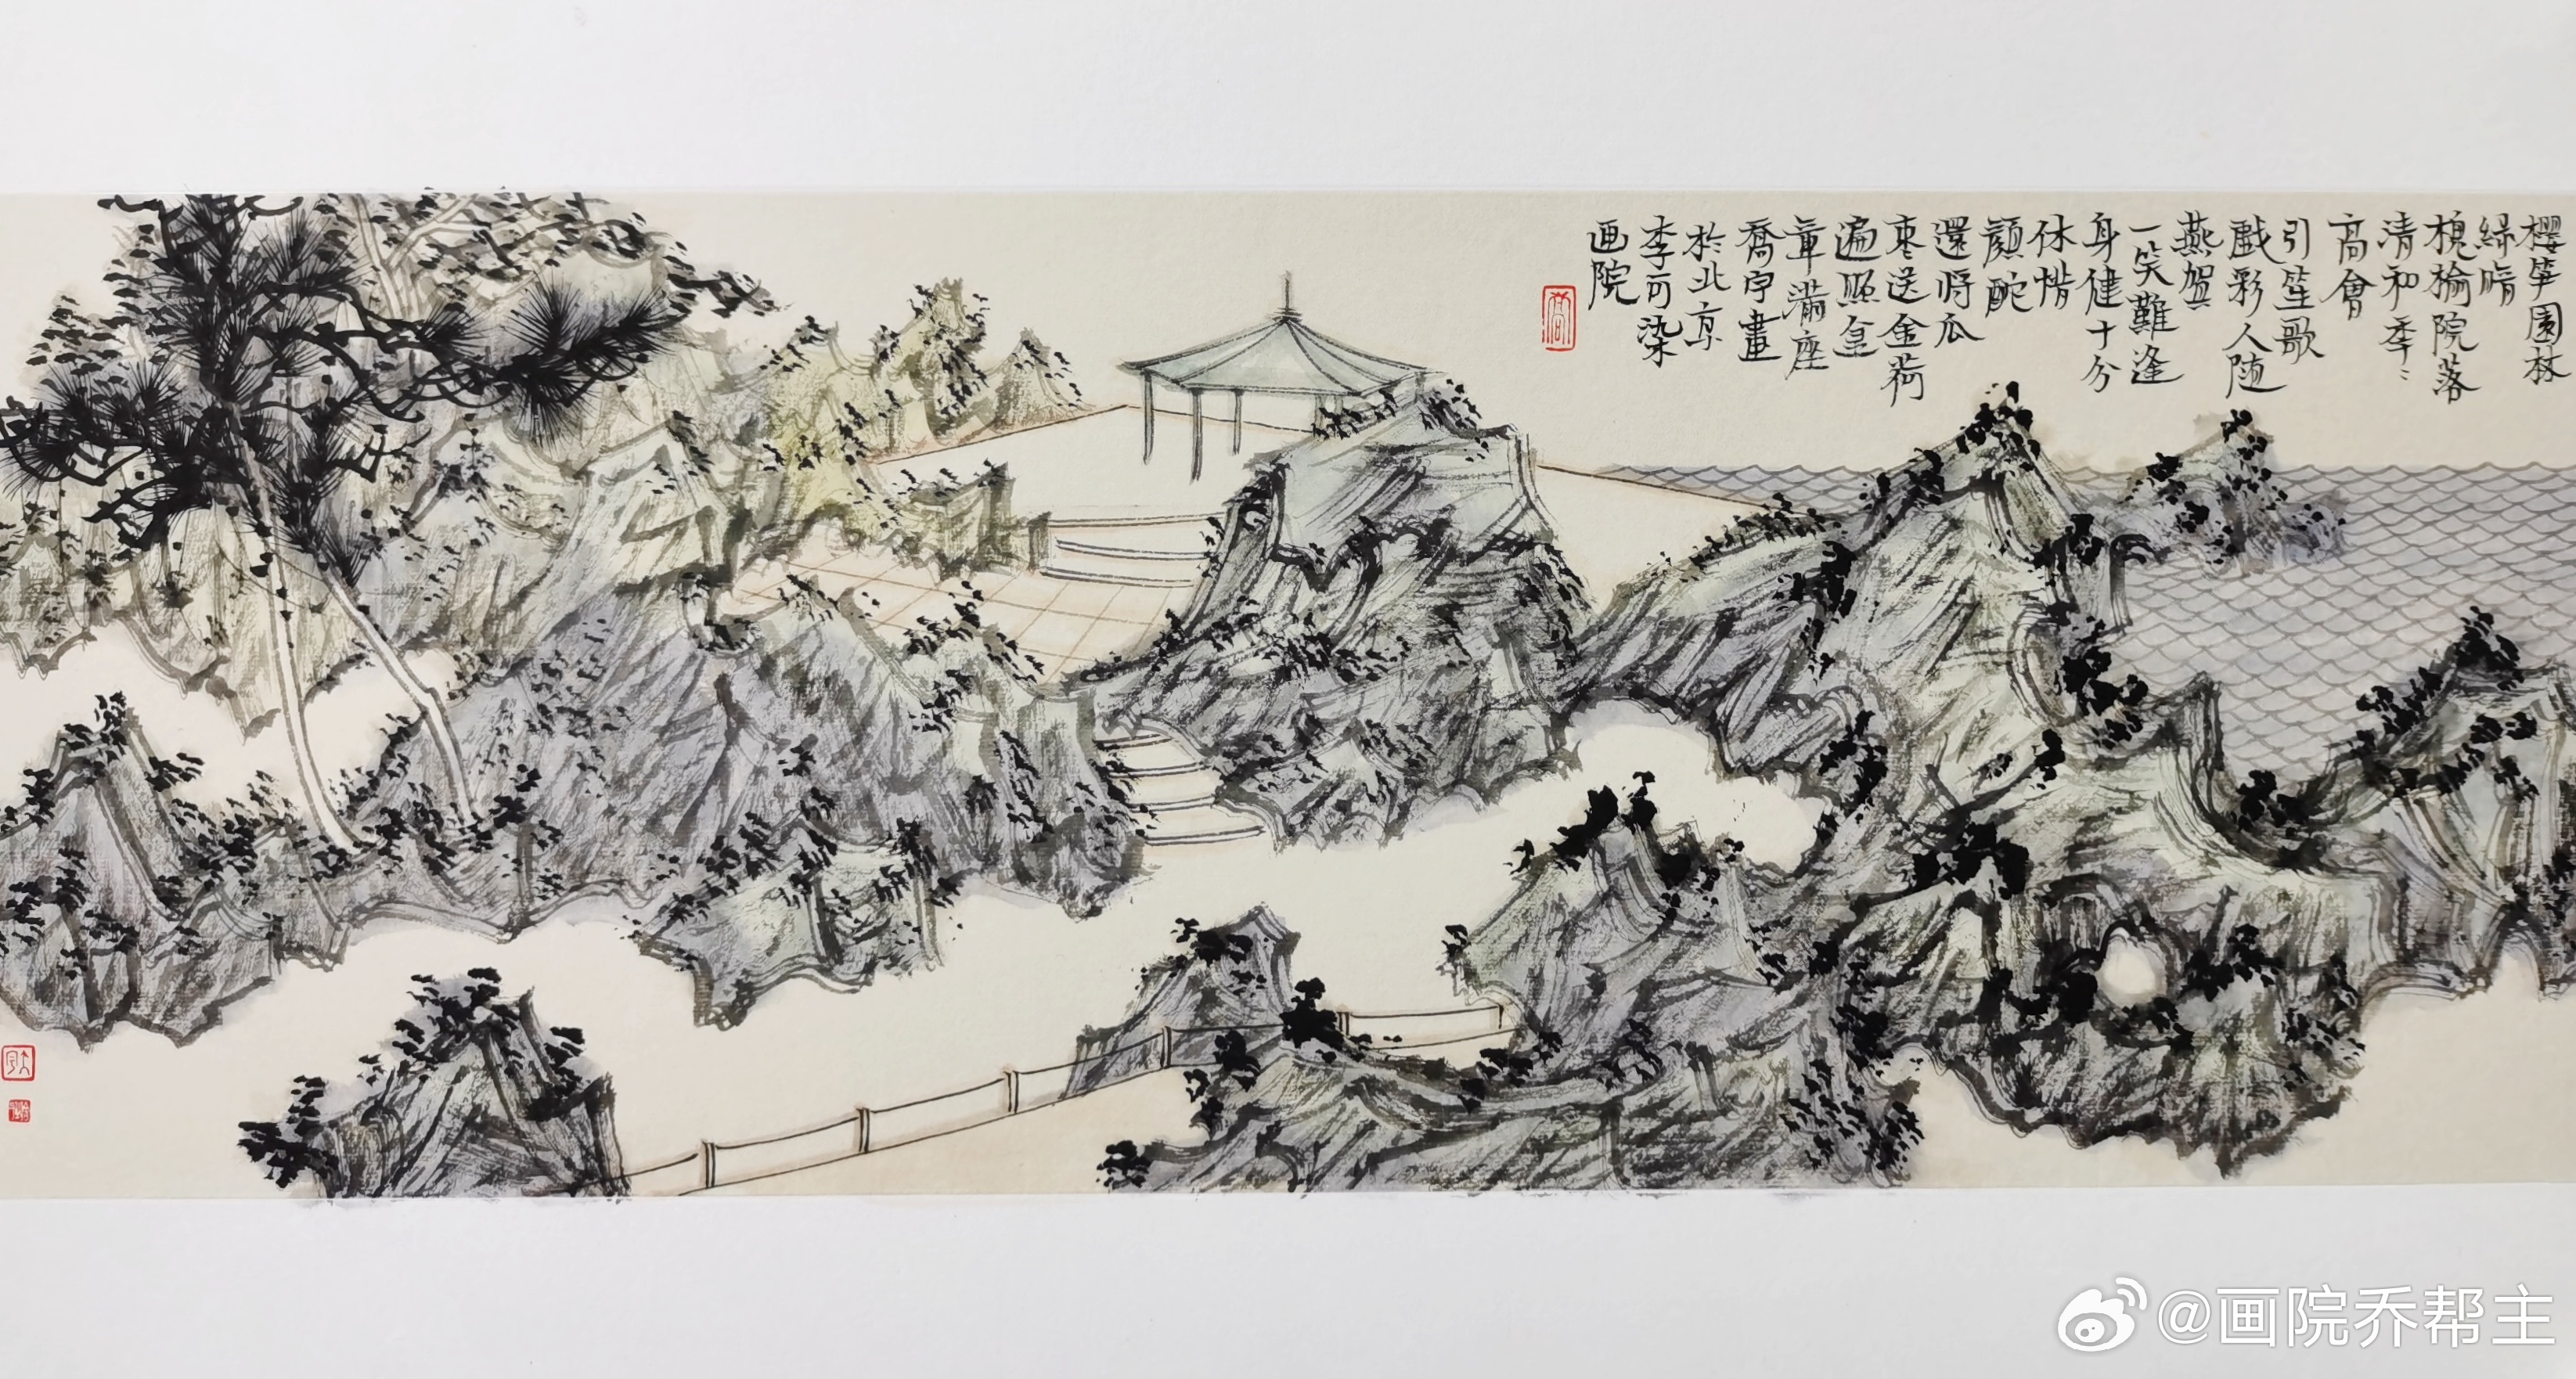 櫻笋園林
緑暗
槐榆院落
清和季〻
高會
引笙歌
戲彩人随
燕賀
一笑難逢
身健十分
休惜
顔酡
還将瓜
棗送金荷
遍照皇
章滿座
喬宇畫
於北京
李可染
画院
喬
@画院乔帮主